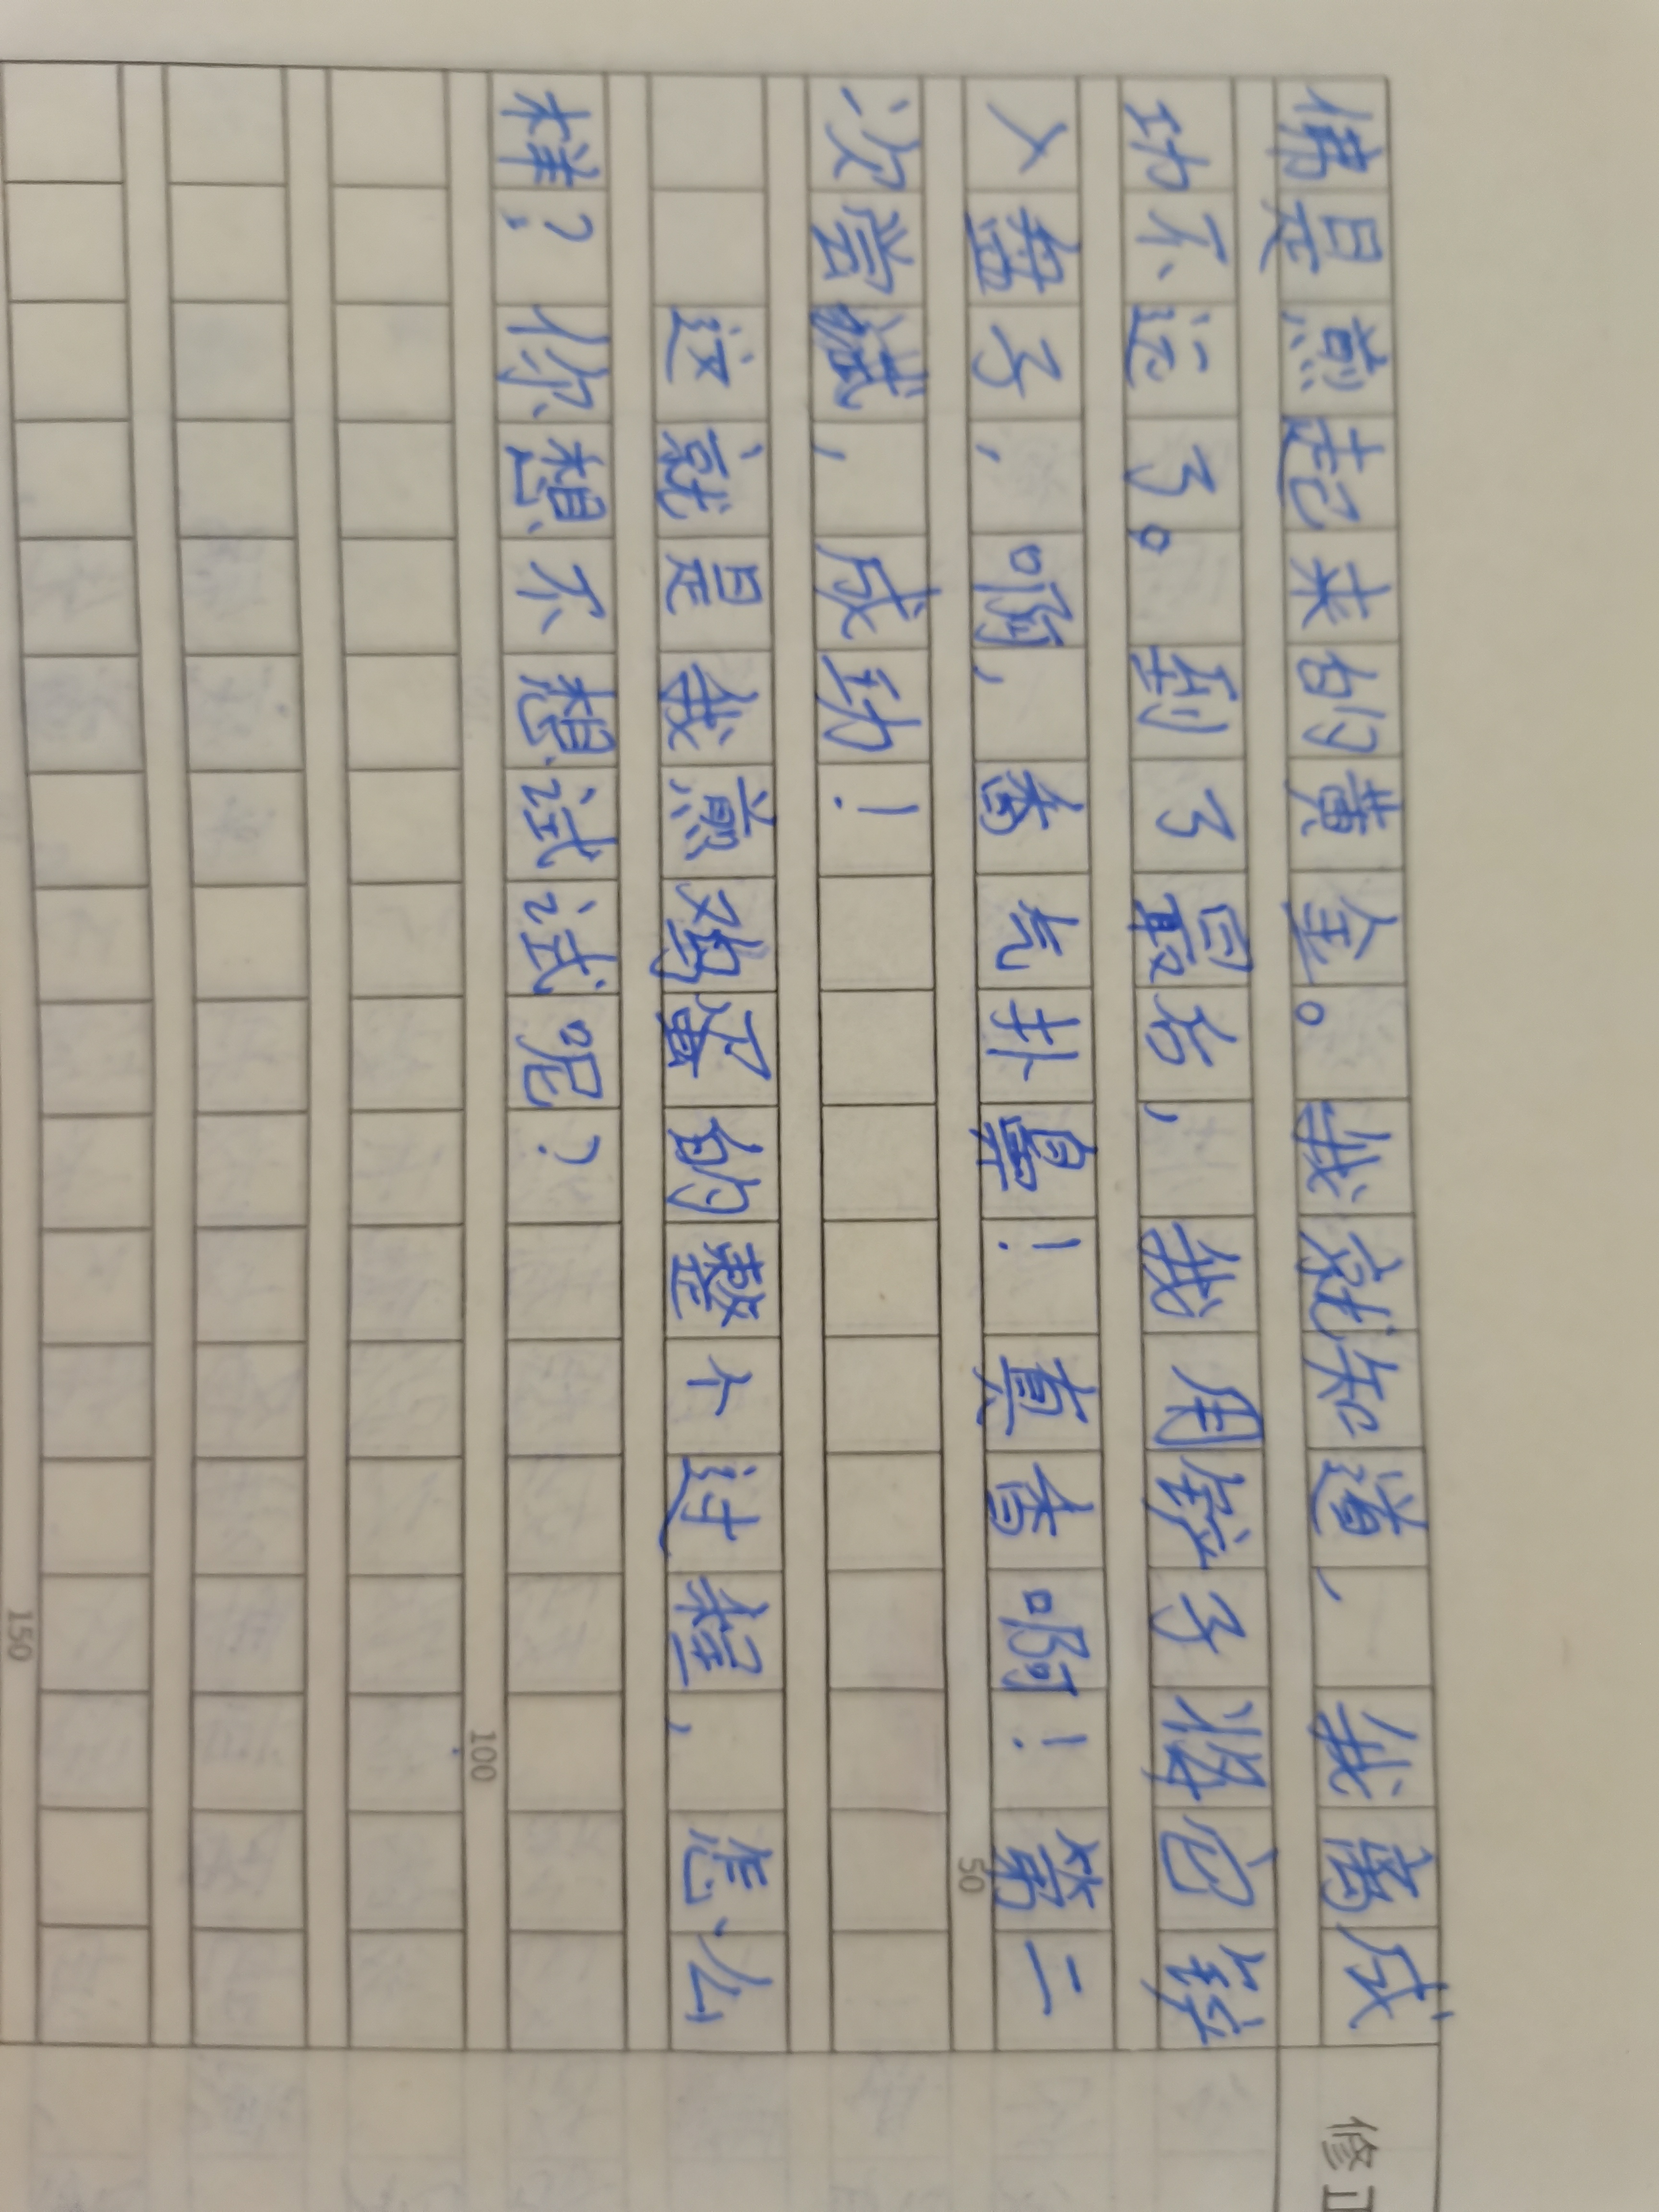 情是煎起来的黄金。我就知道，我离成
功不远了。到了最后，我用铲子将它铲
入盘子，啊，香气扑鼻！真香啊！第二
50
次尝试，成功！
这就是我煎鸡蛋的整个过程，怎么
样？你想不想试试呢？
100
150
修正